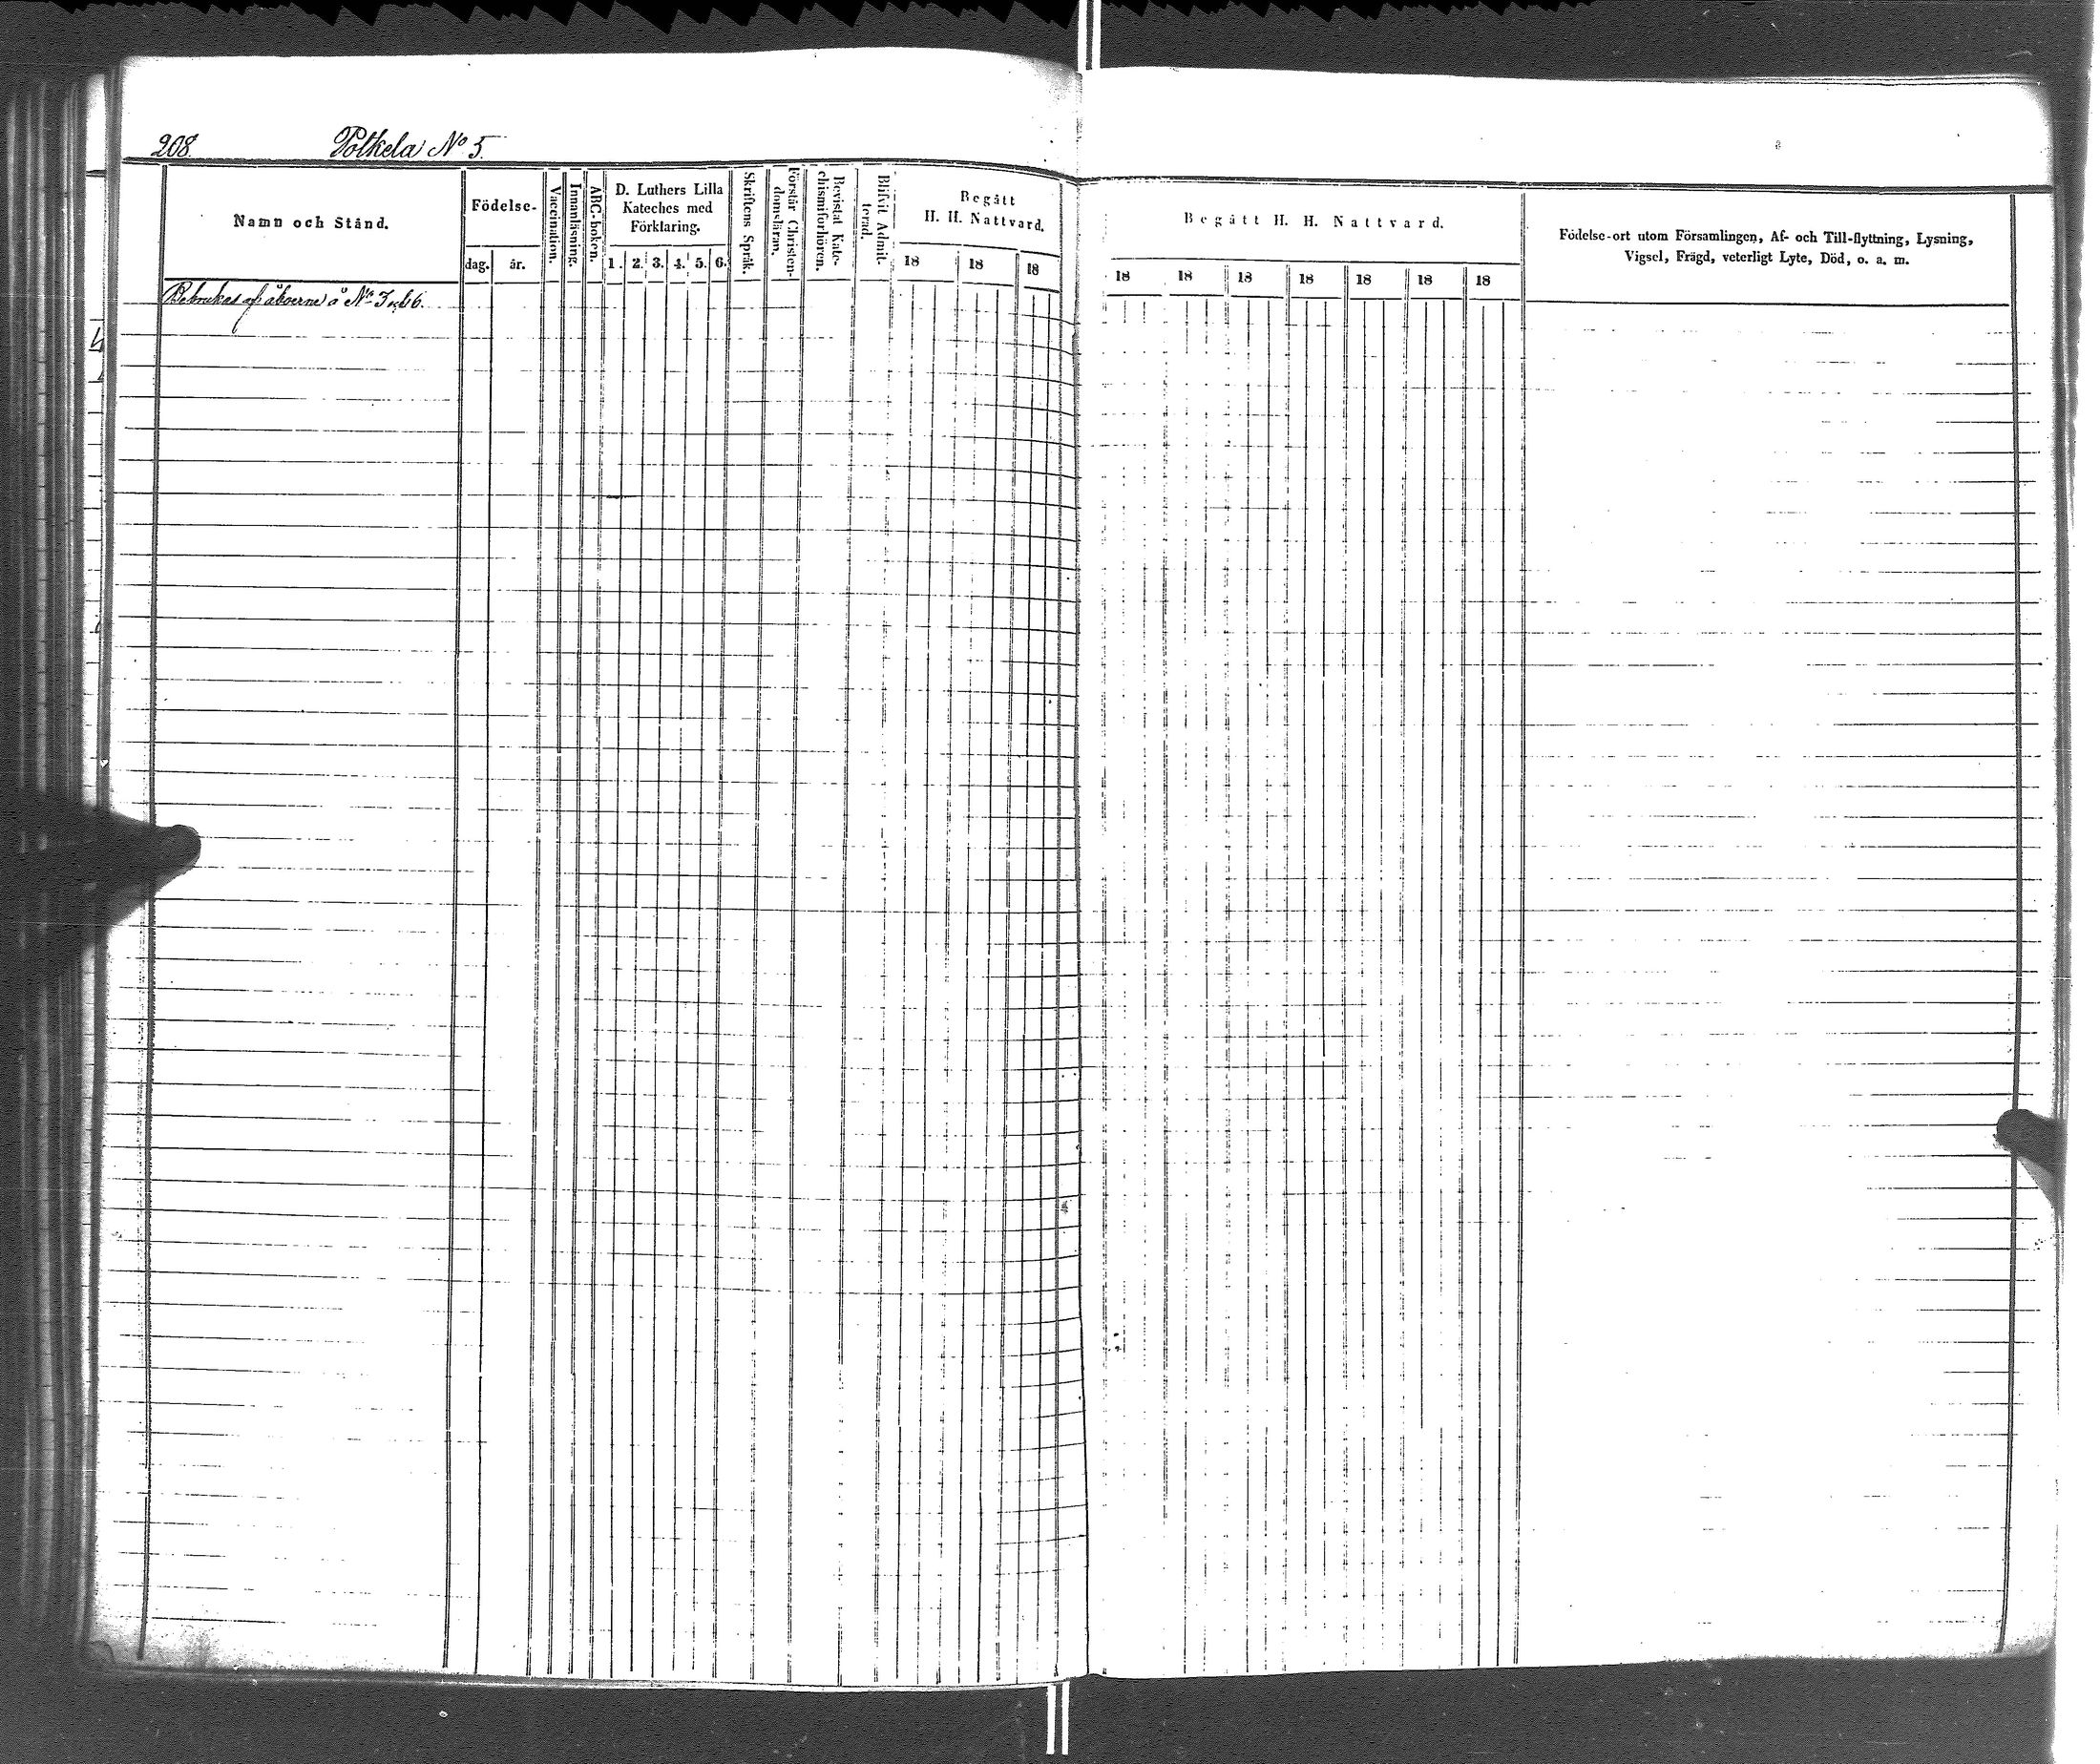 208. Potkela No 5.
Namn och Stånd.
Födelse-
dag. år.
Vaccination.
Innanläsning.
ABC-boken.
D. Luthers Lilla
Kateches med
Förklaring.
1. 2. 3. 4. 5. 6.
Skriftens Språk.
Förstår Christen-
domsläran.
Bevistat Kate-
chismiförhören.
Blifvit Admit-
terad.
Begått
H. H. Nattvard.
18 18 18
Begått H. H. Nattvard.
18 18 18 18 18 18 18
Födelse-ort utom Församlingen, Af- och Till-flyttning, Lysning,
Vigsel, Frägd, veterligt Lyte, Död, o. a. m.
Bebrukas af åboerne å No 3 6.